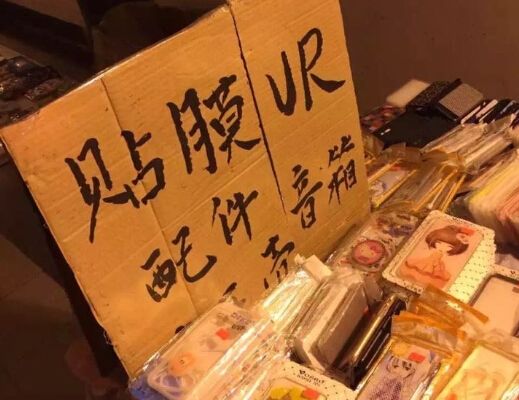 贴膜 VR
配件 音箱
卖